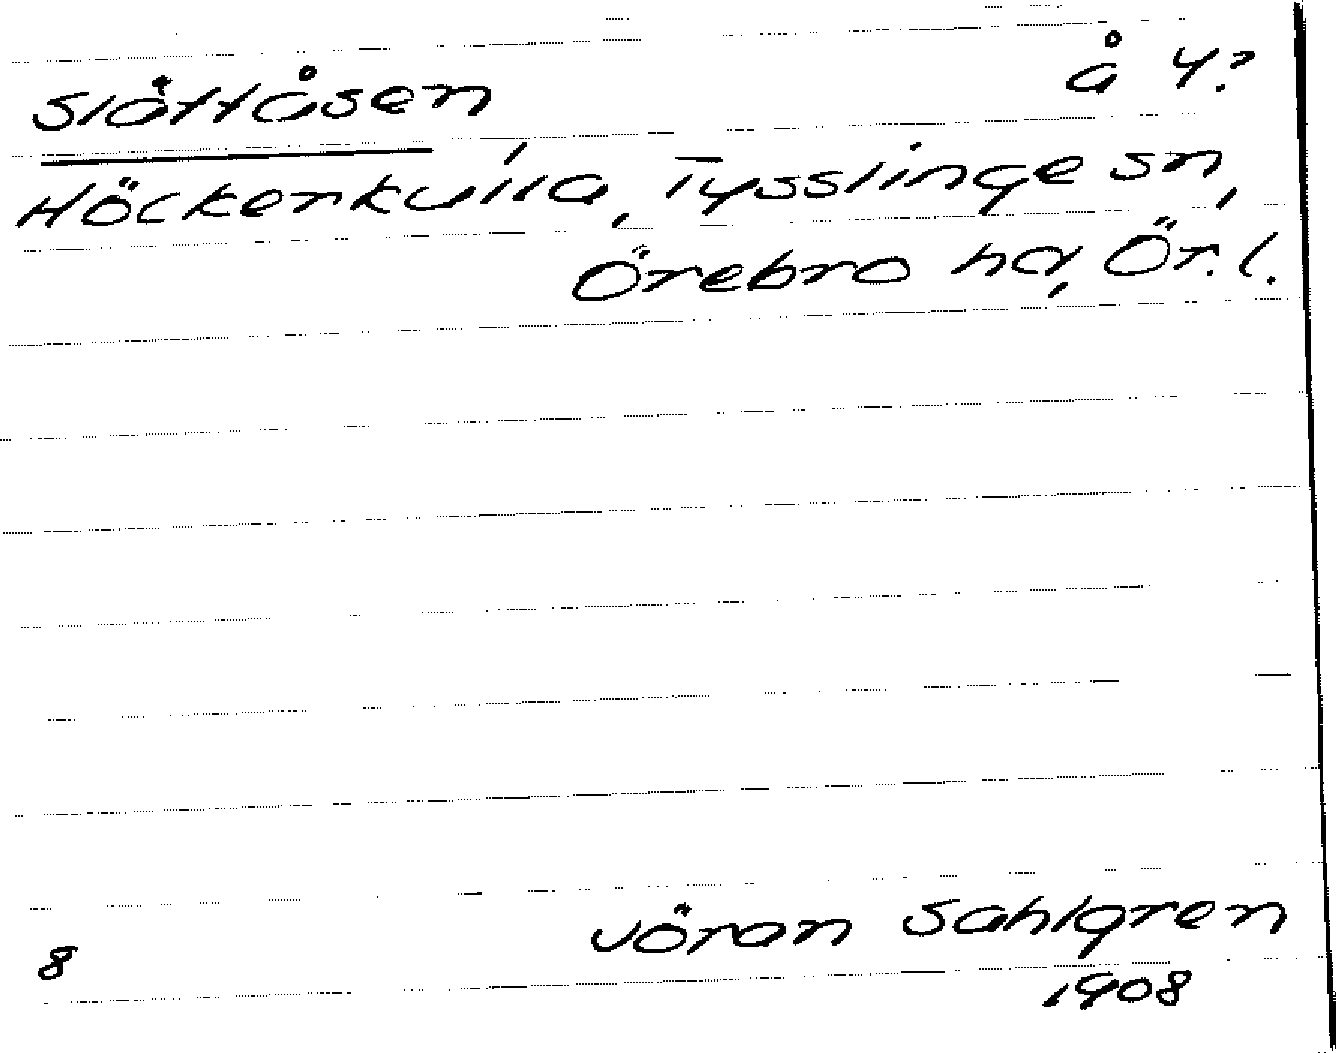 Slåttåsen å 4?
Höckerkulla, Tysslinge sn,
Örebro hd, Ör. l.
Jöran Sahlgren
8
1908